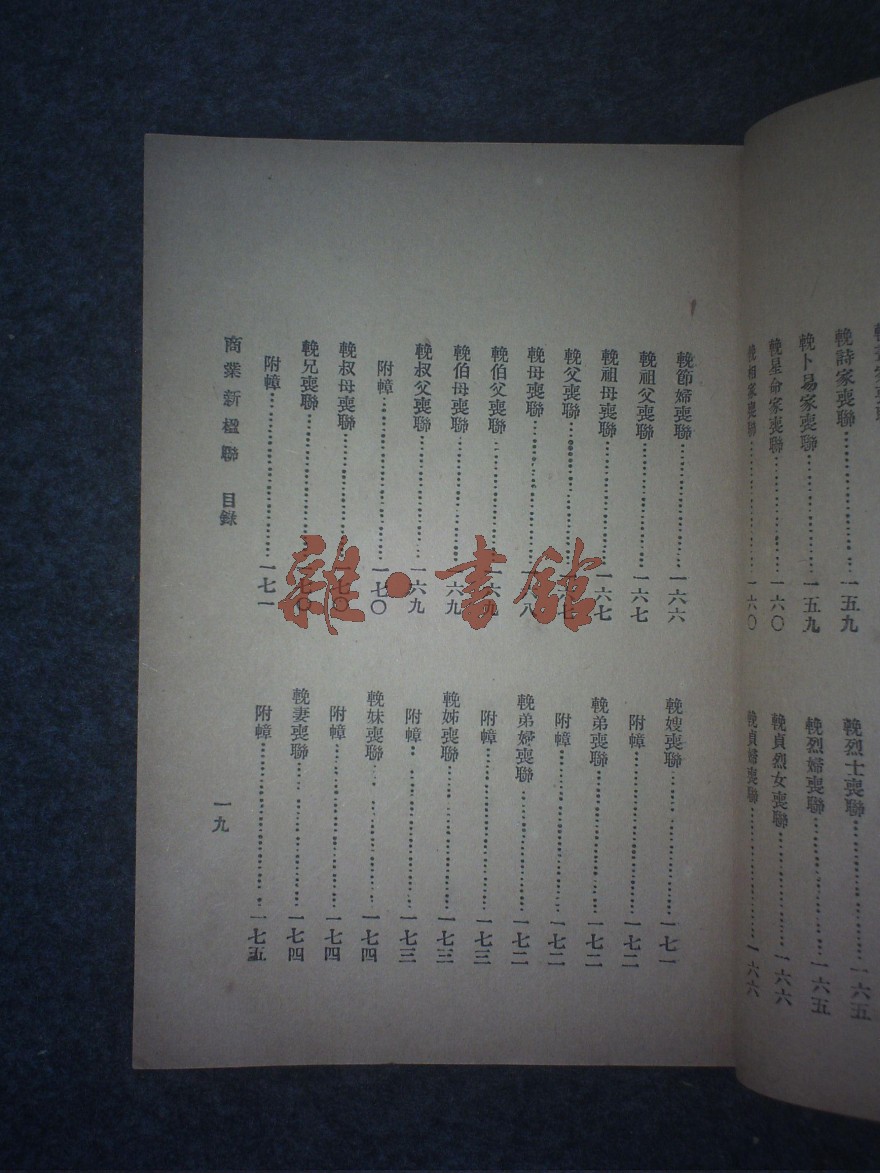 輓詩家喪聯……………一五九
輓卜易家喪聯……………一五九
輓星命家喪聯……………一六〇
輓相家喪聯……………一六〇
輓烈士喪聯……………一六五
輓烈婦喪聯……………一六五
輓貞烈女喪聯……………一六六
輓貞婦喪聯……………一六六
輓節婦喪聯……………一六六
輓祖父喪聯……………一六七
輓祖母喪聯……………一六七
輓父喪聯……………一六七
輓母喪聯……………一六八
輓伯父喪聯……………一六九
輓伯母喪聯……………一六九
輓叔父喪聯……………一六九
附幛……………一七〇
輓叔母喪聯……………一七〇
輓兄喪聯……………一七〇
附幛……………一七一
輓嫂喪聯……………一七一
附幛……………一七二
輓弟喪聯……………一七二
附幛……………一七二
輓弟婦喪聯……………一七二
附幛……………一七三
輓姊喪聯……………一七三
附幛……………一七三
輓妹喪聯……………一七四
附幛……………一七四
輓妻喪聯……………一七四
附幛……………一七五
商業新楹聯 目錄
一九
雜·書館